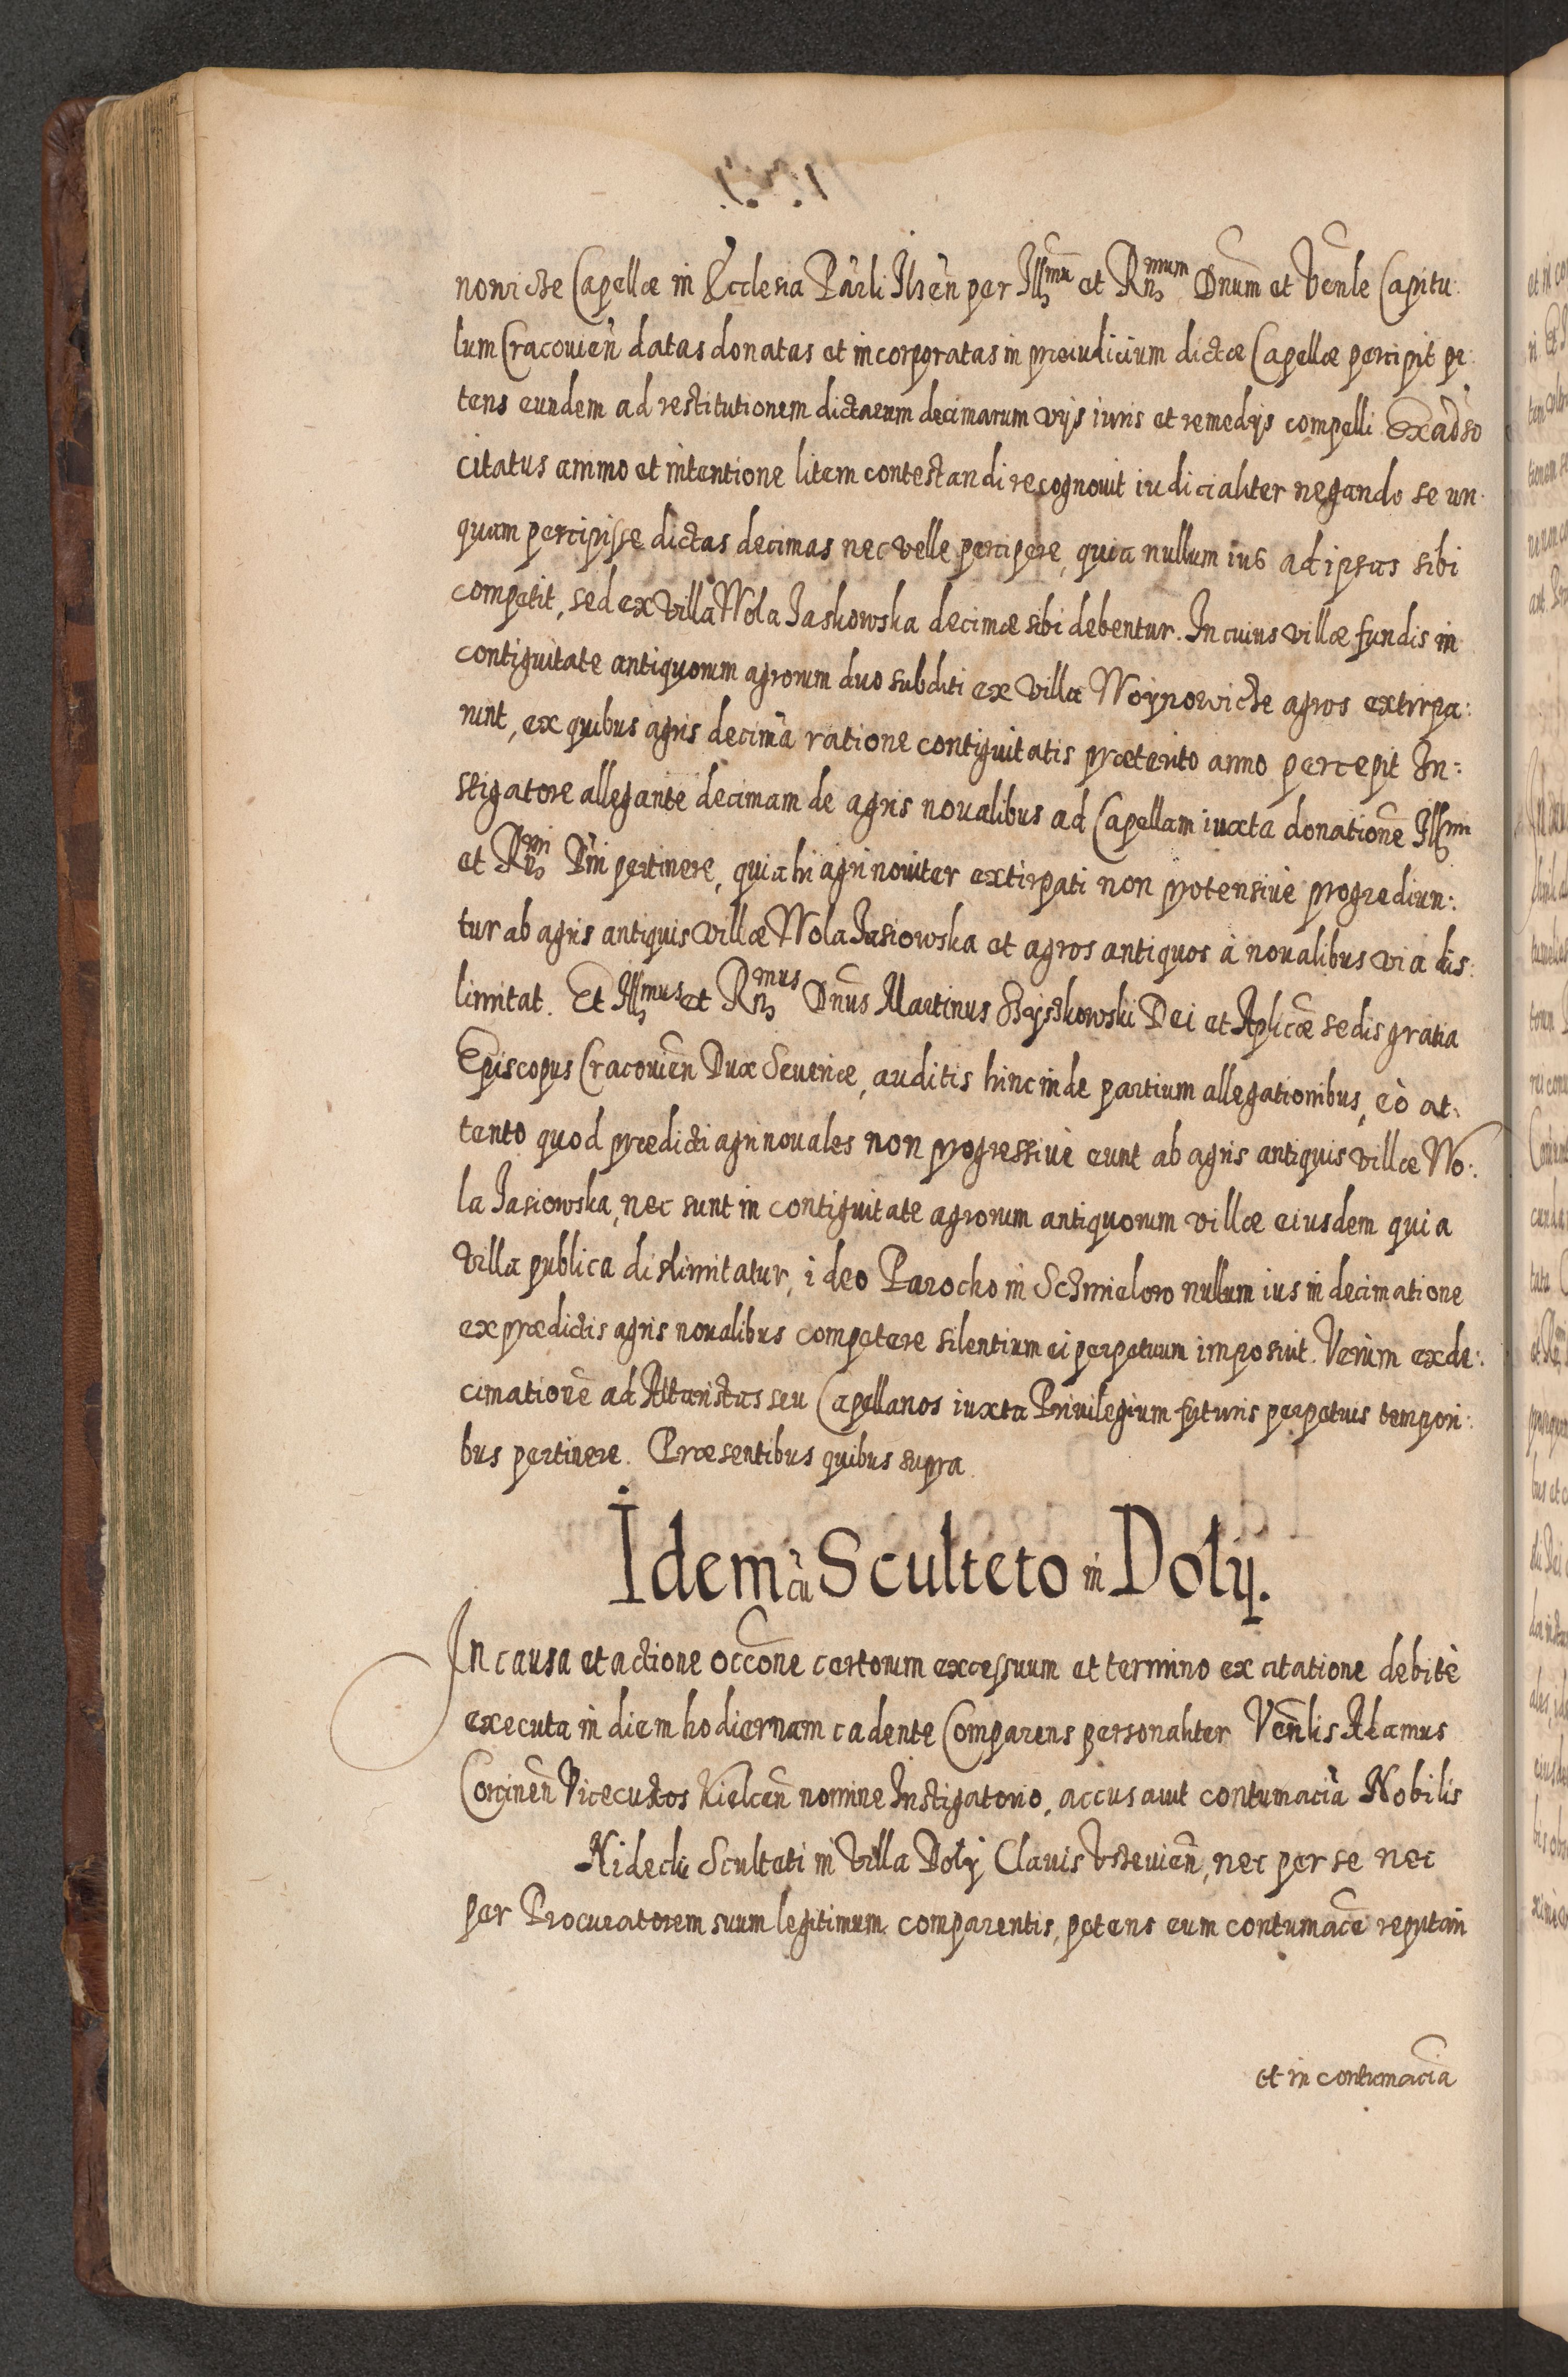 nowicze Capellæ in Ecclesia Parli Ilzen̄ per Illmū et Rn̄mum Dnum et Venle Capitu:
lum Cracouien̄ datas donatas et incorporatas in præiudicium dictæ Capellæ percipit pe:
tens eundem ad restitutionem dictarum decimarum vijs iuris et remedijs compelli. Ex ad̄so
citatus animo et intentione litem contestandi recognouit iudicialiter negando se un:
quam percipisse dictas decimas nec velle percipere, quia nullum ius ad ipsas sibi
competit, sed ex Villa Wola Jaskowska decimæ sibi debentur. In cuius villæ fundis in
contiguitate antiquorum agrorum duo subditi ex villa Woÿnowicze agros extirpa:
runt, ex quibus agris decimā ratione contiguitatis præterito anno percepit In:
stigatore allegante decimam de agris noualibus ad Capellam iuxta donationē Illmi
et Rn̄mi Dn̄i pertinere, quia hi agri nouiter extirpati non protensiuè progrediun:
tur ab agris antiquis villæ Wola Jasiowska et agros antiquos à noualibus via dis:
limitat. Et Illmus et Rn̄mus Dnūs Martinus Szÿszkowski Dei et Aplicæ sedis gratia
Episcopus Cracouien̄ Dux Seueriæ, auditis hinc inde partium allegationibus, eò at:
tento quod prædicti agri nouales non progressiuè eunt ab agris antiquis villæ Wo:
la Jasiowska, nec sunt in contiguitate agrorum antiquorum villæ eiusdem quia
villa publica dislimitatur, ideo Parocho in Schmielow nullum ius in decimatione
ex prædictis agris noualibus competere silentium ei perpetuum imposuit. Verùm ex de:
cimationē ad Altaristas seu Capellanos iuxta Priuilegium futuris perpetuis tempori:
bus pertinere. Præsentibus quibus supra
Idem cū Sculteto in Dołÿ.
In causa et actione occōne certorum excessuum et termino ex citatione debitè
executa in diem hodiernam cadente Comparens personaliter Venlis Adamus
Corcinen̄ Vicecustos Kielcen̄ nomine Instigatorio, accusauit contumaciā Nobilis
Nidecki Sculteti in Villa Dołÿ Clauis Vrzeuien̄, nec per se nec
per Procuratorem suum legitimum comparentis, petens eum contumacē reputari
et in contumaciā